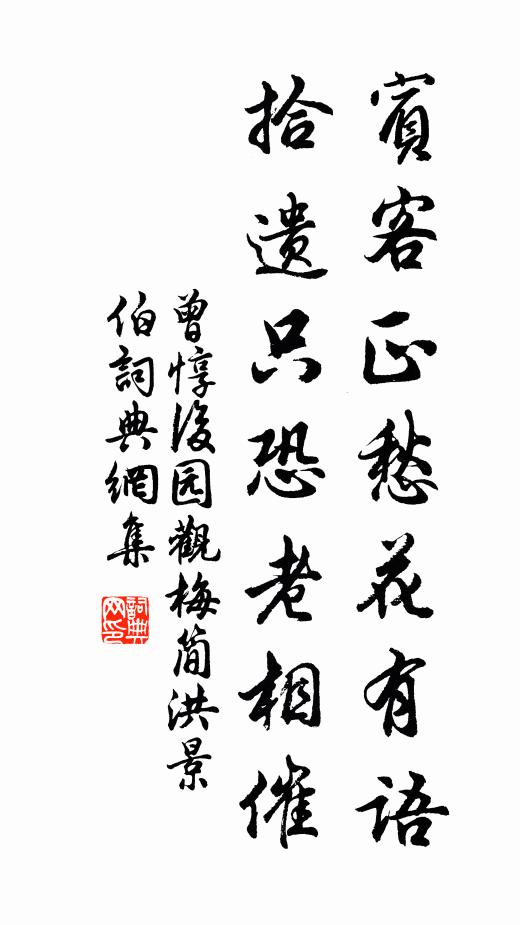 賓客正愁花有語
拾遺只恐老相催
曾惇後园觀梅简洪景
伯詞典網集
詞典
网印